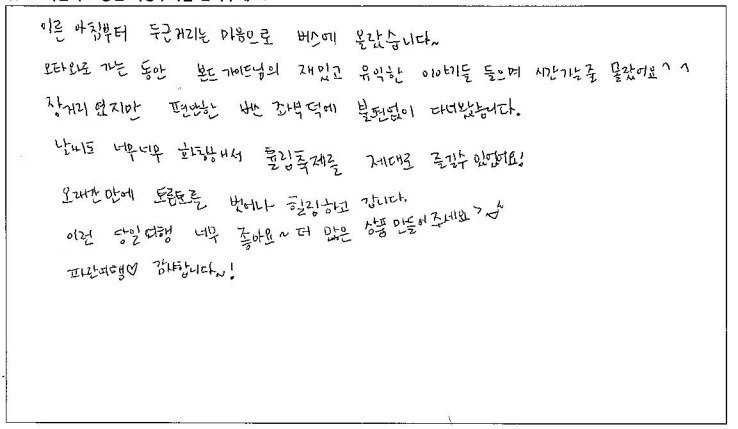 이른 아침부터 두근거리는 마음으로 버스에 올랐습니다~
오타와로 가는 동안 본드 가이드님의 재밌고 유익한 이야기를 들으며 시간가는줄 몰랐어요^^
장거리 였지만 편안한 버스 좌석 덕에 불편없이 다녀왔습니다.
날씨도 너무너무 화창해서 튤립축제를 제대로 즐길수 있었어요!
오래간만에 토론토를 벗어나 힐링하고 갑니다.
이런 당일여행 너무 좋아요~ 더 많은 상품 만들어주세요>
파란여행♡ 감사합니다~!